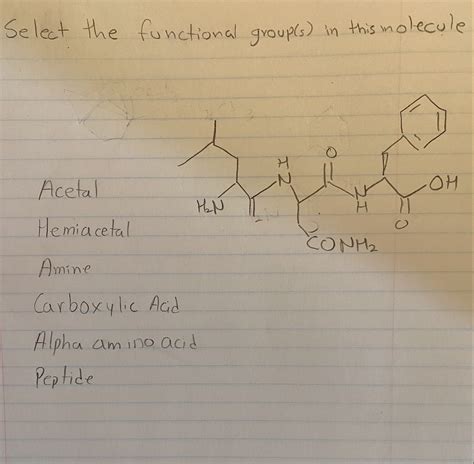 Select the functional group(s) in this molecule
H
O
N
OH
H₂N
N
H
O
CONH₂
Acetal
Hemiacetal
Amine
Carboxylic Acid
Alpha amino acid
Peptide